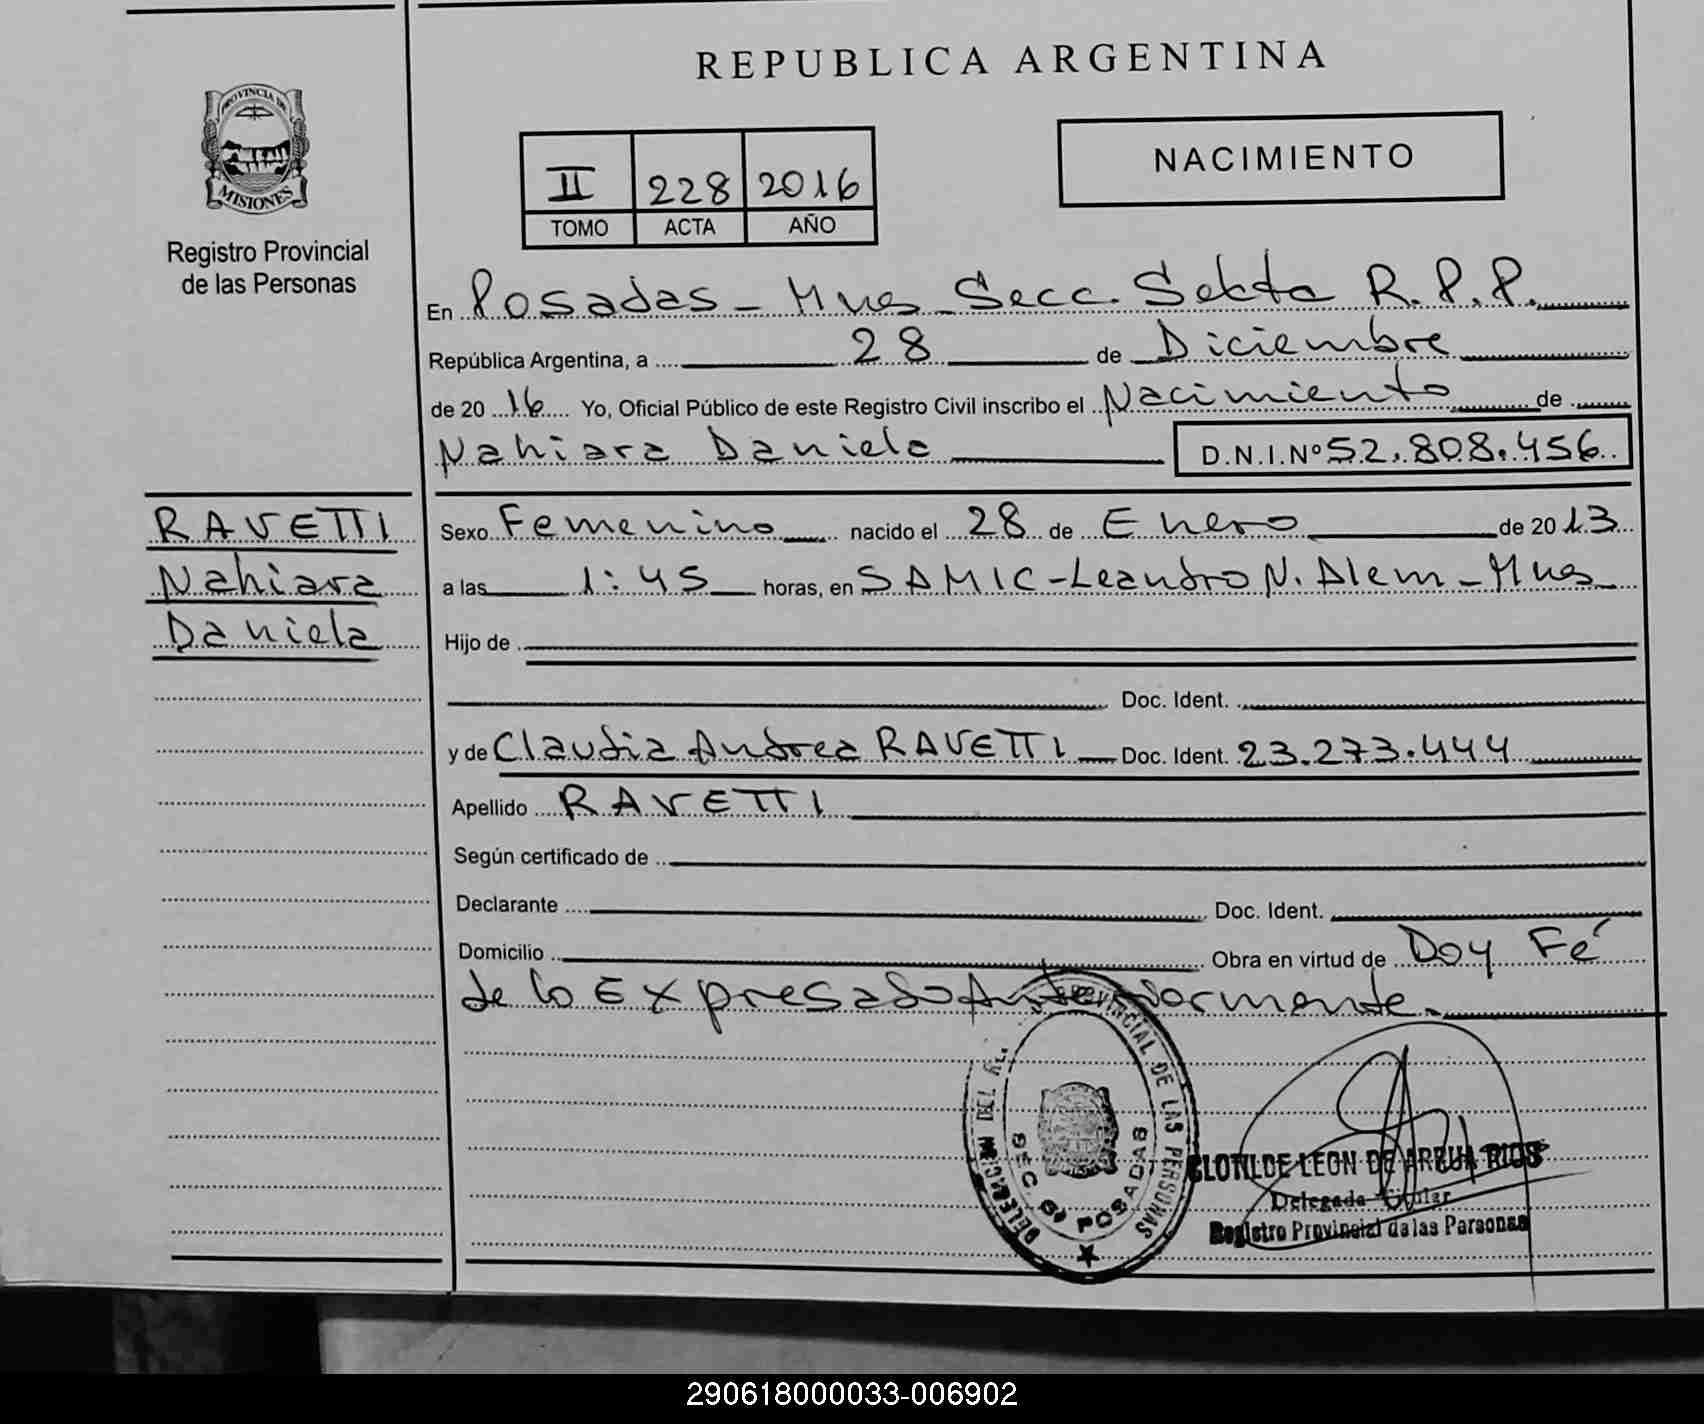 REPUBLICA ARGENTINA
PROVINCIA DE
MISIONES
Registro Provincial
de las Personas
II 228 2016
TOMO ACTA AÑO
NACIMIENTO
En Posadas - Mnes Secc. Sekta R.P.P.
República Argentina, a 28 de Diciembre
de 2016 Yo, Oficial Público de este Registro Civil inscribo el Nacimiento de
Nahiara Daniela D.N.I.Nº 52.808.456
RAVETTI
Nahiara
Daniela
Sexo Femenino nacido el 28 de Enero de 2013
a las 1:45 horas, en SAMIC - Leandro N. Alem - Mnes
Hijo de
Doc. Ident.
y de Claudia Andrea RAVETTI Doc. Ident. 23.273.444
Apellido RAVETTI
Según certificado de
Declarante Doc. Ident.
Domicilio Obra en virtud de Doy Fé
de lo Expresado Anteriormente.
DELEGACION DEL R. PROVINCIAL DE LAS PERSONAS
SEC. 6ª POSADAS
CLOTILDE LEON DE RIOS
Delegada Titular
Registro Provincial de las Personas
290618000033-006902